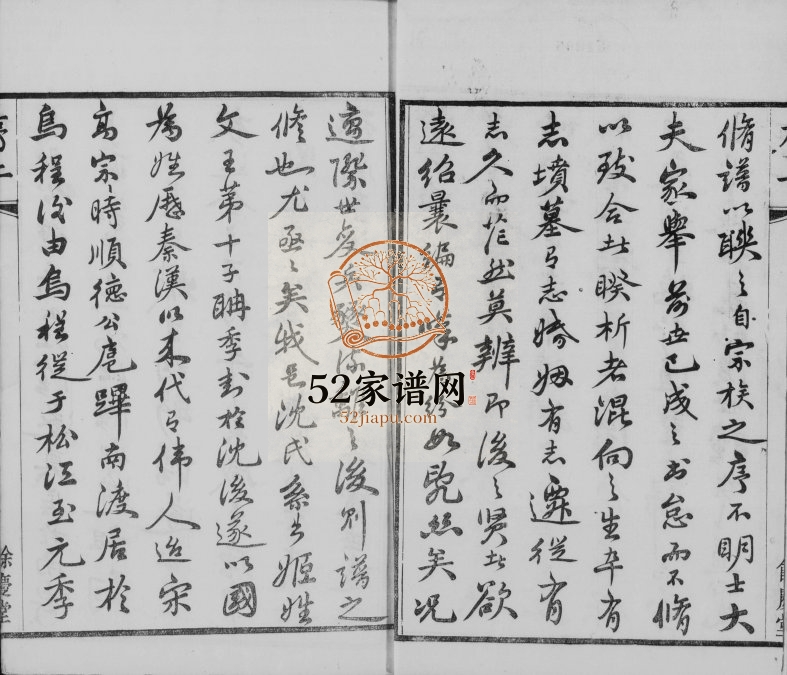 脩譜以聯之自宗族之序不明士大
夫家舉前世已成之書怠而不脩
以致合者睽析者混向之生卒有
志墳墓有志婚姻有志遷徙有
志久而茫然莫辨即後之賢者欲
遠紹曩編 絲矣况
遭 世 之後則譜之
脩也尤亟亟矣我邑沈氏系出姬姓
文王第十子聃季封於沈後遂以國
為姓歷秦漢以來代有偉人迨宋
高宗時順德公扈蹕南渡居於
烏程後由烏程徙于松江至元季
序二
餘慶堂
52家谱网
52jiapu.com